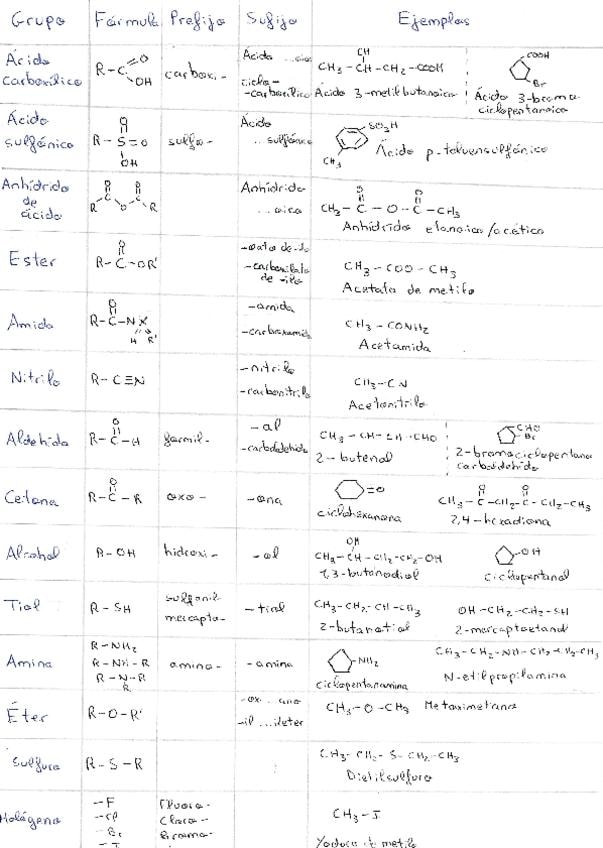 Grupo Fórmula Prefijo Sufijo Ejemplos
Ácido carboxílico R-C O OH carboxi- Ácido ...oico
ciclo- -carboxílico
CH3 - CH - CH2 - COOH
Ácido 3-metilbutanoico
COOH Br
Ácido 3-bromo ciclopentanoico
Ácido sulfónico R-S=O O OH sulfo- Ácido ...sulfónico
SO3H CH3
Ácido p-toluensulfónico
Anhídrido de ácido R C O O C O R Anhídrido ...oico
CH3 - C - O - C - CH3
O O
Anhídrido etanoico/acético
Ester R-C-OR' O
-carboxilato de -ilo
CH3 - COO - CH3
Acetato de metilo
Amida R-C-N O H R' -amida
-carboxamida
CH3 - CONH2
Acetamida
Nitrilo R-C≡N -nitrilo
-carbonitrilo
CH3-CN
Acetonitrilo
Aldehido R-C-H O formil- -al
-carbaldehido
CH3 - CH - CH - CHO
2-butenal
CHO Br
2-bromociclopentano carbaldehido
Cetona R-C-R O oxo- -ona
=O
ciclohexanona
CH3 - C - CH2 - C - CH2 - CH3
O O
2,4-hexadiona
Alcohol R-OH hidroxi- -ol
OH
CH3-CH-CH2-CH2-OH
1,3-butanodiol
-OH
Ciclopentanol
Tiol R-SH
mercapto- -tiol
CH3-CH2-CH-CH3
2-butanotiol
OH-CH2-CH2-SH
2-mercaptoetanol
Amina R-NH2
R-NH-R
R-N-R
R
amino- -amina
-NH2
ciclopentanamina
CH3-CH2-NH-CH2-CH2-CH3
N-etilpropilamina
Éter R-O-R'
-il ...éter
CH3-O-CH3 Metoximetano
Sulfuro R-S-R
CH3-CH2-S-CH2-CH3
Dietilsulfuro
Halógeno -F
-Cl
-Br
-I
Fluoro-
Cloro-
Bromo-
CH3-I
Yoduro de metilo